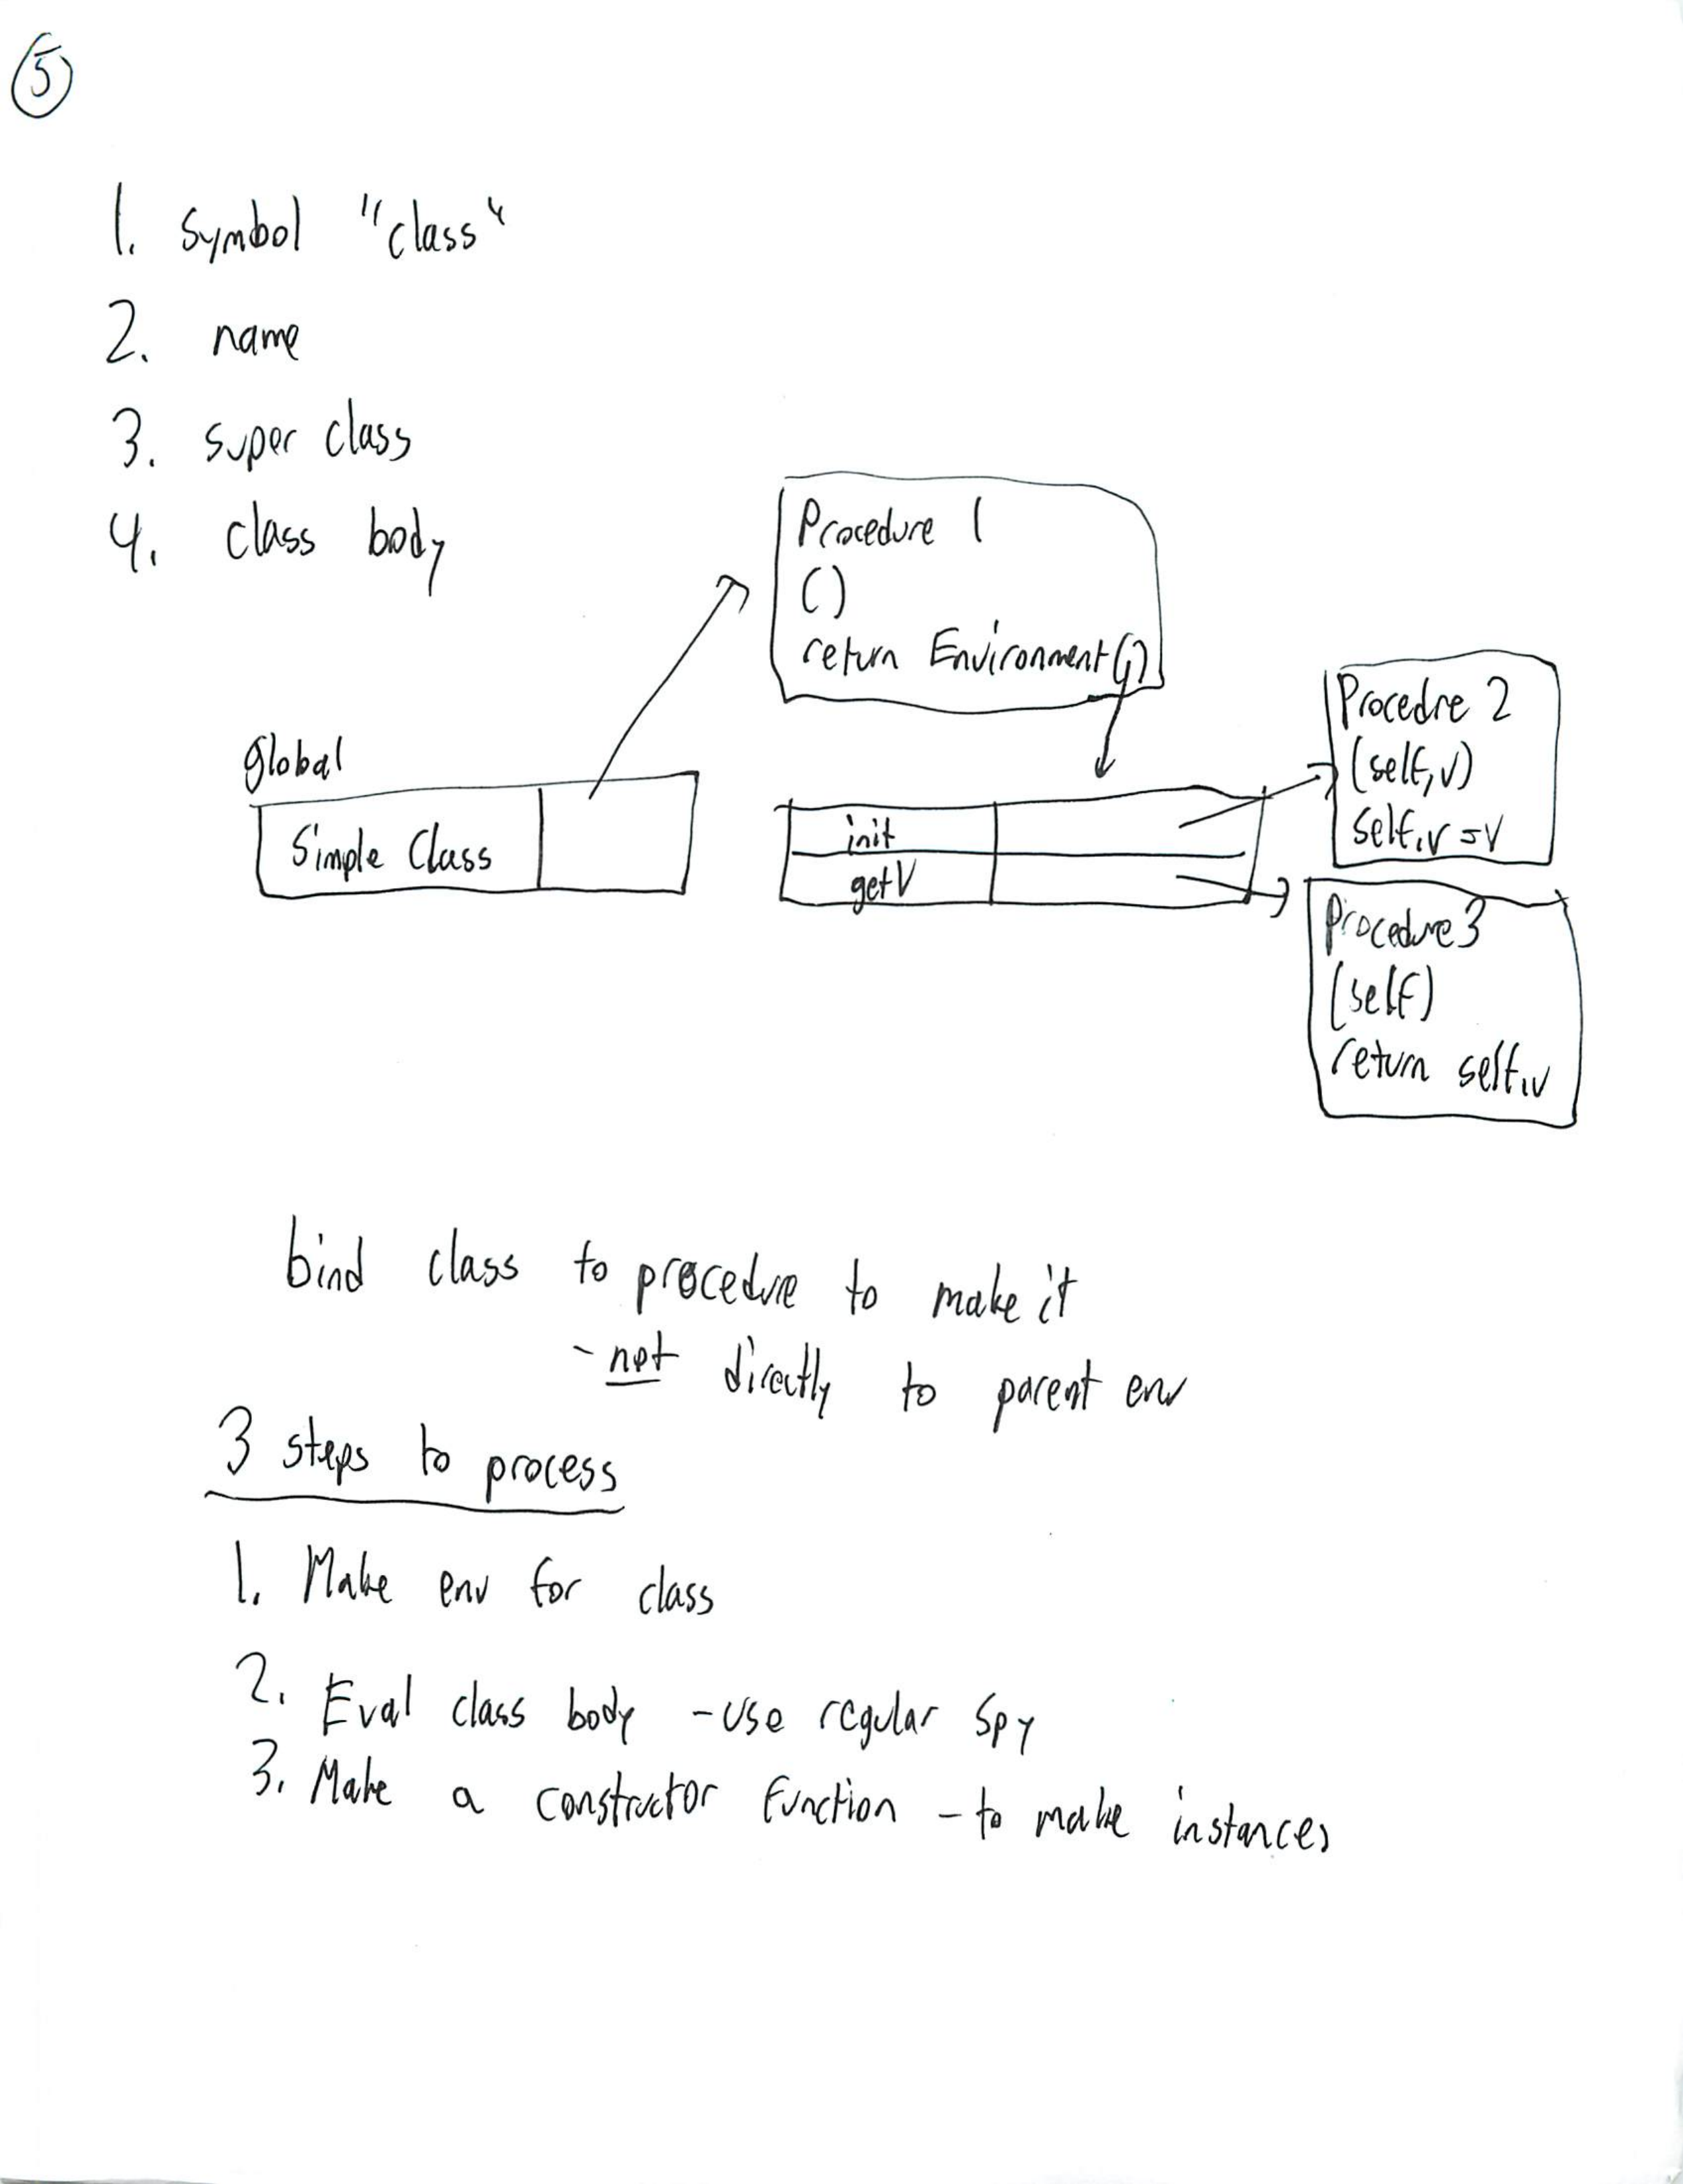 5
1. symbol "class"
2. name
3. super class
4. class body
Procedure 1
()
return Environment(,)
Global
Simple Class
init
getV
Procedre 2
(self, v)
self.v = v
Procedure 3
(self)
return self.v
bind class to procedure to make it
- not directly to parent env
3 steps to process
1. Make env for class
2. Eval class body - use regular Spy
3. Make a constructor function - to make instances